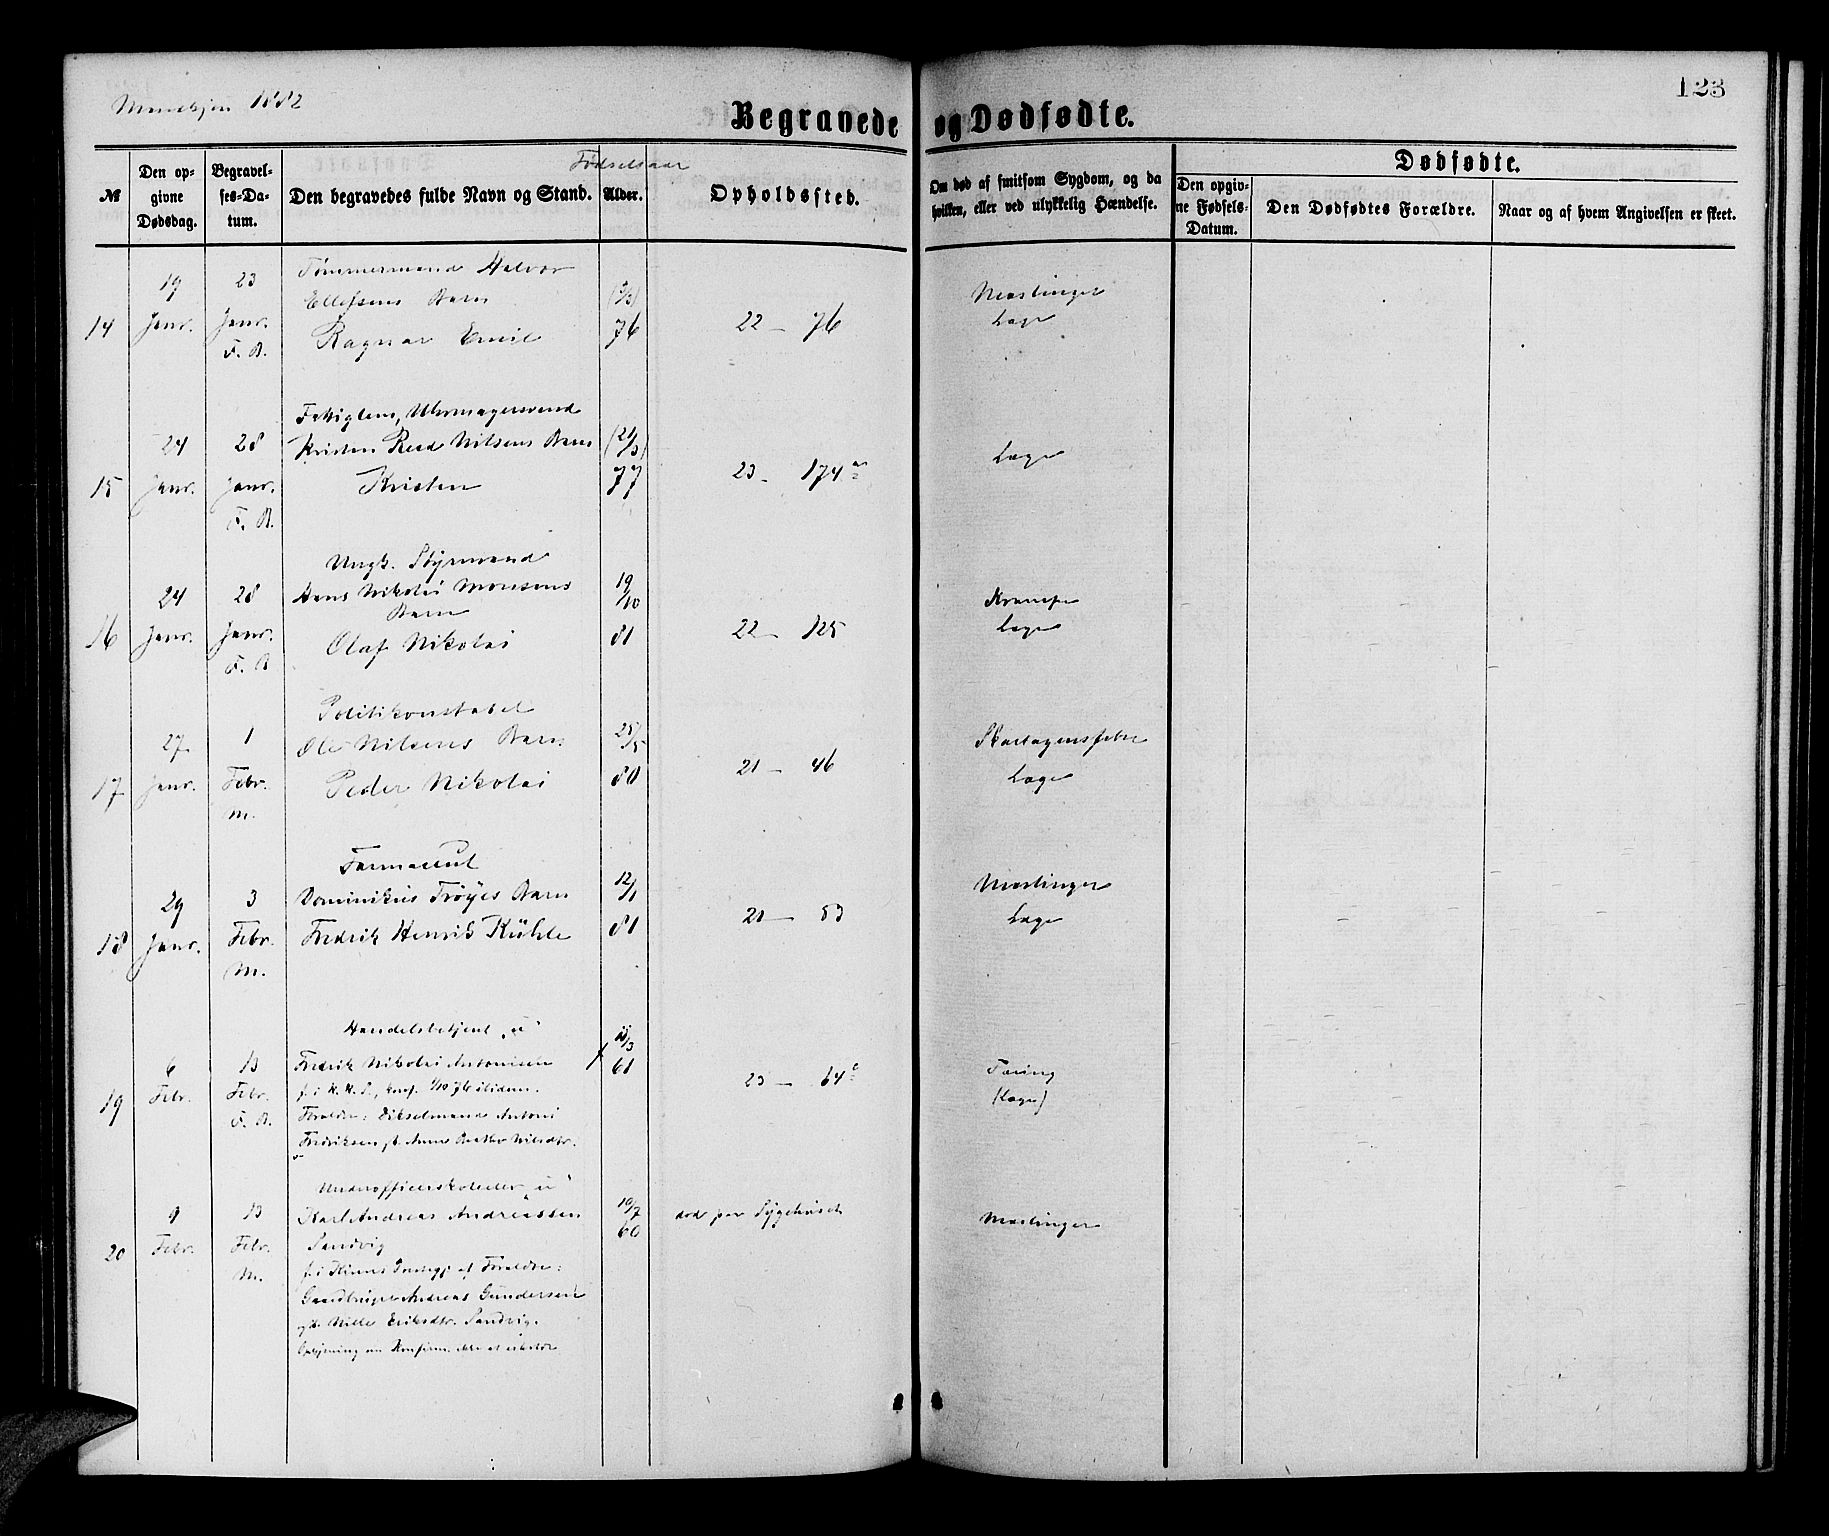 Mandkjøn 1882
123
Begravede og Dødfødte.
№
Den opgivne Dødsdag.
Begravelses-Datum.
Den begravedes fulde Navn og Stand.
Fødselsaar
Alder.
Opholdssted.
Om død af smitsom Sygdom, og da hvilken, eller ved ulykkelig Hændelse.
Dødfødte.
Den opgivne Fødsels-Datum.
Den Dødfødtes Forældre.
Naar og af hvem Angivelsen er skeet.
14
19 Janr.
23 Janr. F. B.
Tømmermand Halvor
Ellefsens Barn
Ragnar Emil
76
22 — 76
Mæslinger
Læge
15
24 Janr.
28 Janr. F. B.
Fattiglem, Uhrmagersvend
Kristen Reed Nilsens Barn
Kristen
(21/3) 77
23 — 174
Læge
16
24 Janr.
28 Janr. F. B
Ungk. Styrmand
Hans Nikolai Monsens
Barn
Olaf Nikolai
19/10 81
22 — 125
Krampe
Læge
17
27 Janr.
1 Febr. M.
Politikonstabel
Ole Nilsens Barn
Peder Nikolai
80
21 — 46
Skarlagensfeber
Læge
18
29 Janr.
3 Febr. M.
Farmaceut
Dominikus Trøyes Barn
Fredrik Henrik Kühle
12/1 81
21 — 53
Mæslinger
Læge
19
6 Febr.
13 Febr. F. B.
Handelsbetjent „u"
Fredrik Nikolai Antonisen
f. i K. K. S., konf. 1/10 76 ibidem.
Forældre: Antoni
Fredriksen og Anne Nilsdtr.
61
23 — 64
Tæring
(Læge)
20
9 Febr.
13 Febr. M.
Underofficerskoleelev „u"
Karl Andreas Andreassen
Sandvig
f. i Kinns Prestegj. af Forældre:
Gaardbruger Andreas Gundersen
og Nille Eriksdtr. Sandvig.
10/7 60
død paa Sygehuset
Mæslinger